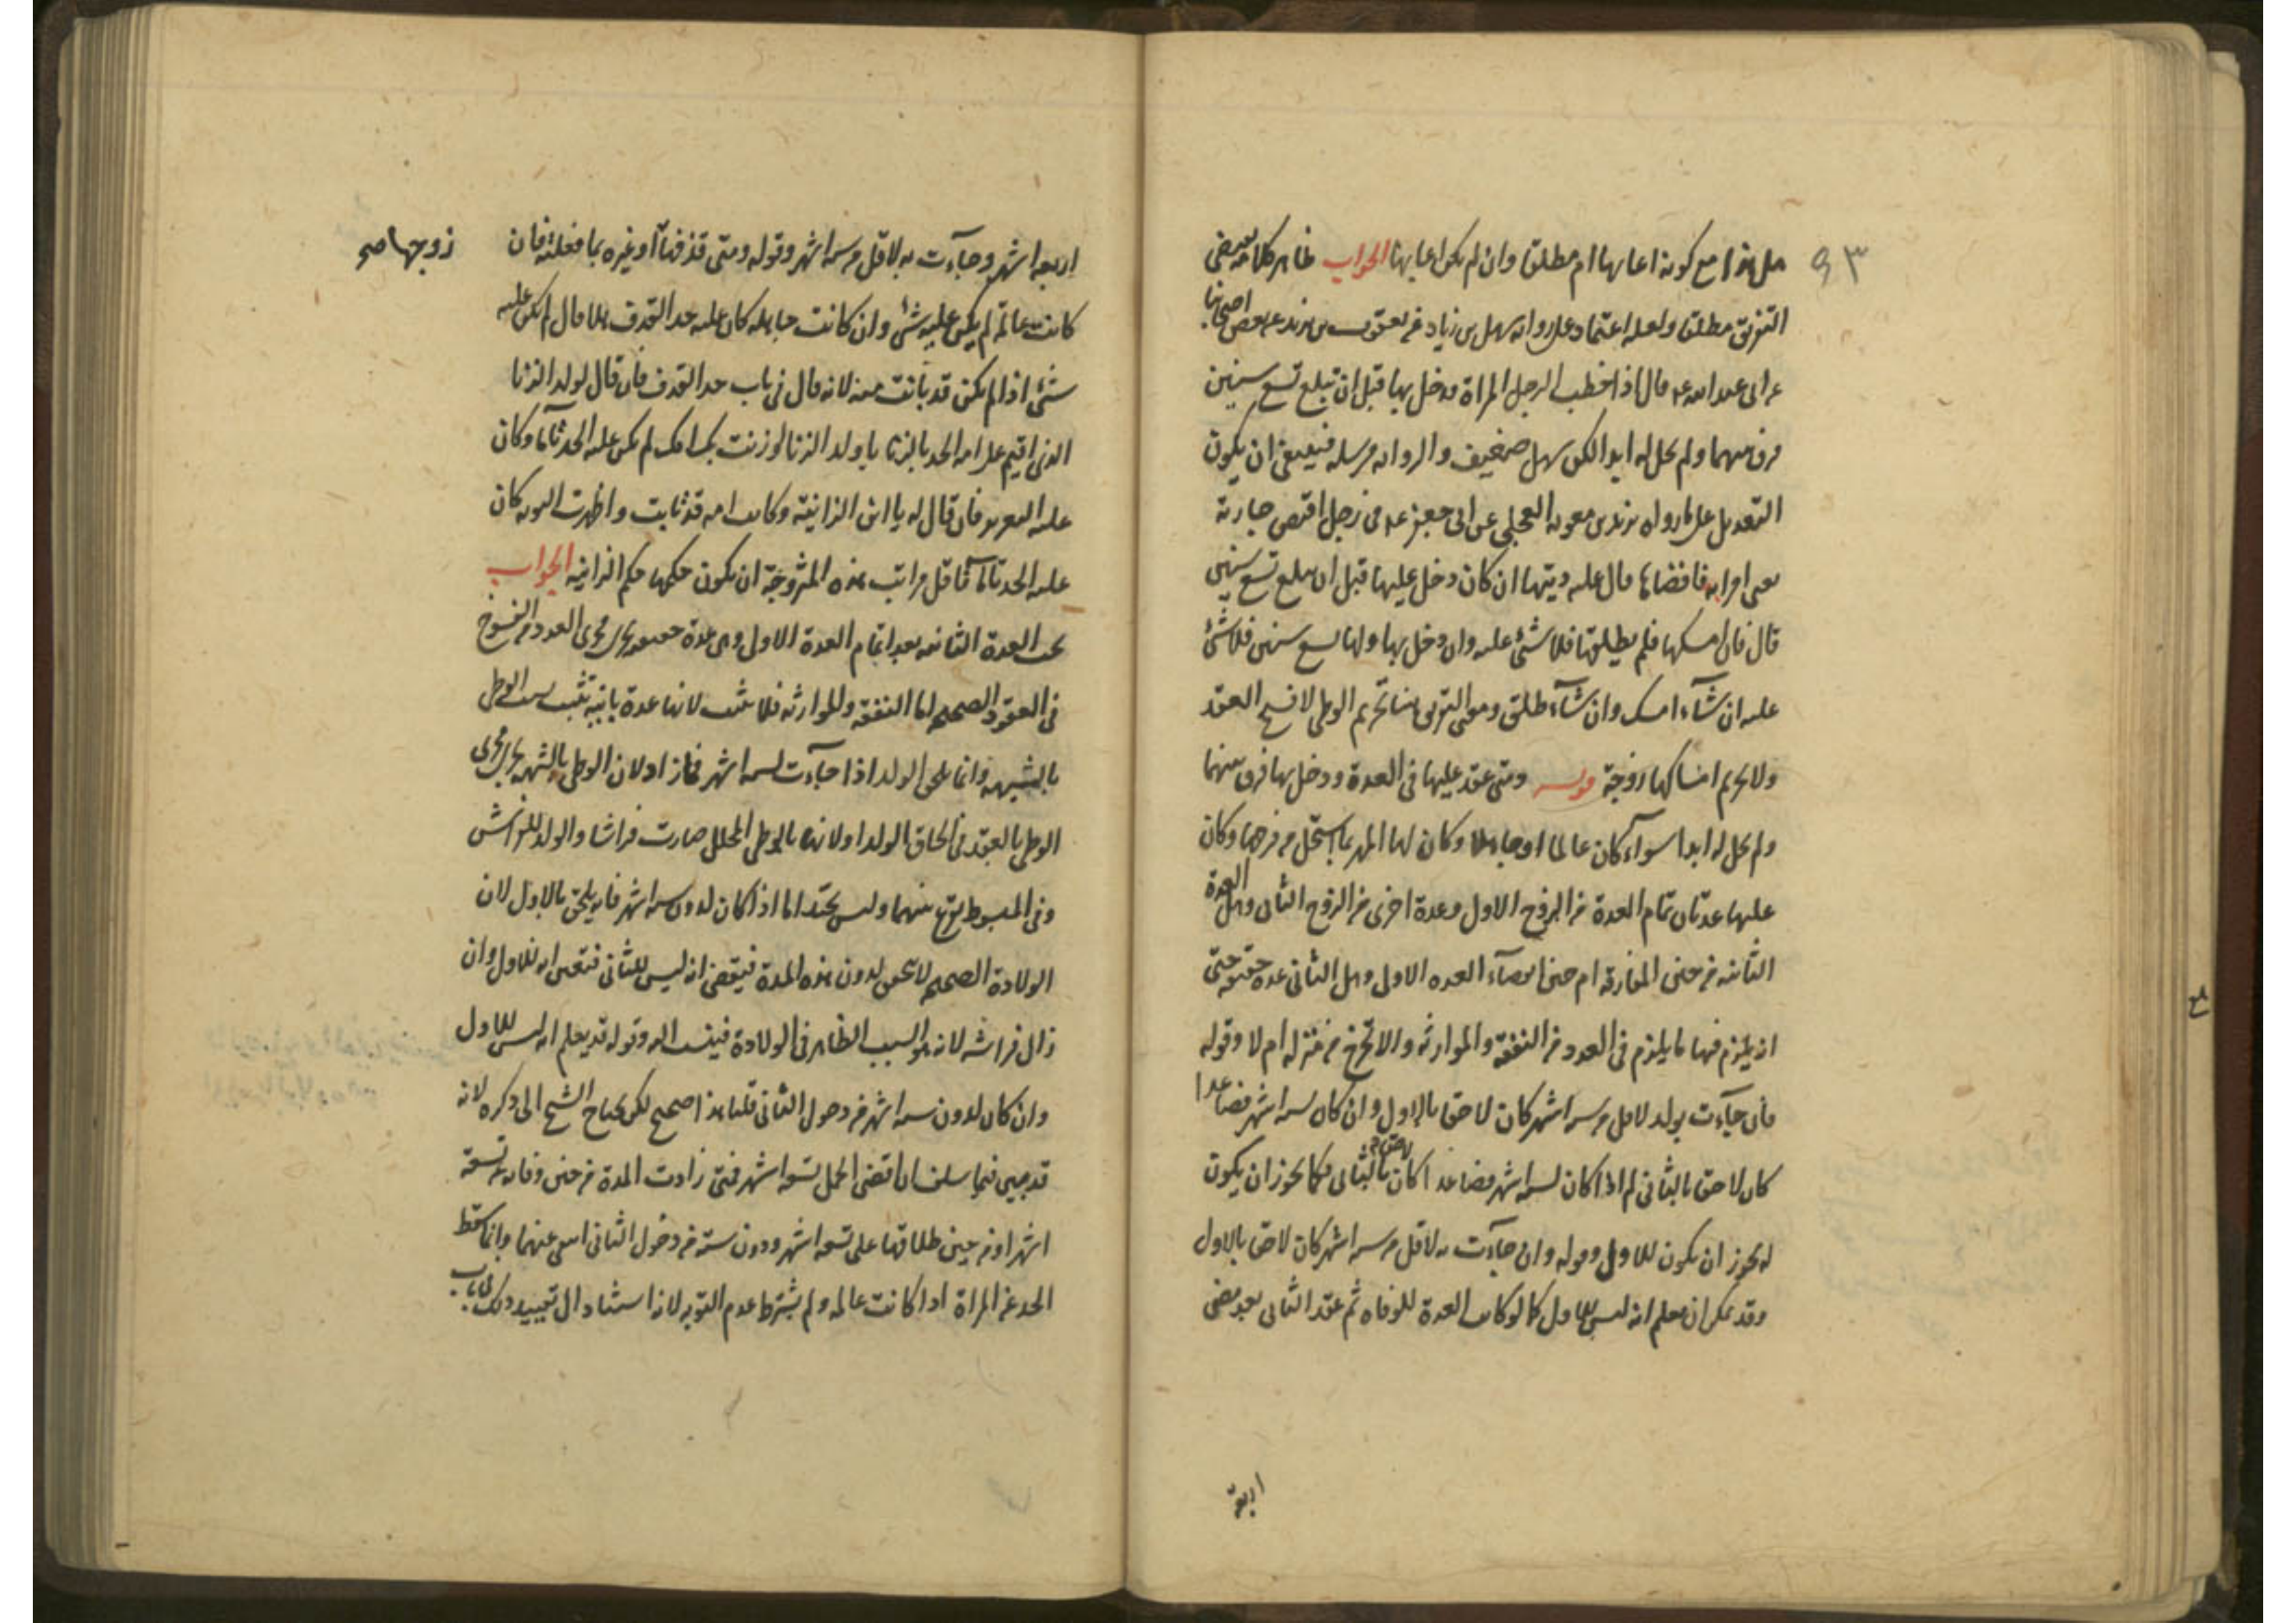 ٩٣
هل هذا مع كونه اعابها ام مطلقا وان لم يكن اعابها الجواب ظاهر كلامه يقتضى
التفريق مطلقا ولعله اعتماد على رواية سهل بن زياد عن يعقوب بن يزيد عن بعض اصحابنا
عن ابى عبد الله ع قال اذا خطب الرجل المراة ودخل بها قبل ان تبلغ تسع سنين
فرق بينهما ولم يحل له ابدا لكن سهل ضعيف والرواية مرسلة فينبغى ان يكون
التعويل على ما رواه بريد بن معوية العجلى عن ابى جعفر ع فى رجل اقتض جارية
يعنى امراته فافضاها قال عليه ديتها ان كان دخل عليها قبل ان تبلغ تسع سنين
قال فان امسكها فلم يطلقها فلا شئ عليه وان دخل بها ولها تسع سنين فلا شئ
عليه ان شآء امسك وان شآء طلق ومعنى التفريق هنا تحريم الوطى لا فسخ العقد
ولا تحريم امساكها زوجة قوله ومتى عقد عليها فى العدة ودخل بها فرق بينهما
ولم يحل له ابدا سوآء كان عالما او جاهلا وكان لها المهر بما استحل من فرجها وكان
عليها عدتان تمام العدة من الزوج الاول وعدة اخرى من الزوج الثانى وهل العدة
الثانية من حين المفارقة ام حين انقضآء العدة الاول وهل الثانى عدة حقيقة حتى
انه يلزم فيها ما يلزم فى العدد من النفقة والموارثة والا تخرج من منزله ام لا وقوله
فان جآءت بولد لاقل من ستة اشهر كان لاحقا بالاول وان كان لستة اشهر فصاعدا
كان لاحقا بالثانى لم اذا كان لستة اشهر فصاعدا كان لاحقا بالثانى فكما يجوز ان يكون
له يجوز ان يكون للاول وقوله وان جآءت به لاقل من ستة اشهر كان لاحقا بالاول
وقد يمكن ان يعلم انه ليس للاول كما لو كانت العدة للوفاة ثم عقد الثانى بعد مضى
اربعة
اربعة اشهر وجآءت به لاقل من ستة اشهر وقوله ومتى قذفها او غيره بما فعلته فان
زوجها صح
كانت عالمة لم يكن عليه شئ وان كانت جاهلة كان عليه حد القذف هلا قال لم يكن عليه
شئ اذا لم يكن قد بانت منه لانه قال فى باب حد القذف فان قال لولد الزنا
الذى اقيم على امه الحد بالزنا يا ولد الزنا او زنت بك امك لم يكن عليه الحد تاما وكان
عليه التعزير فان قال له يا ابن الزانية وكانت امه قد تابت واظهرت التوبة كان
عليه الحد تاما فاقل مراتب هذه المتزوجة ان يكون حكمها حكم الزانية الجواب
تجب العدة الثانية بعد اتمام العدة الاول وهى عدة حقيقة تجرى مجرى العدد من الفسوخ
فى العقود الصحيحة اما النفقة والموارثة فلا تثبت لانها عدة باينة تثبت بسبب الوطى
بالشبهة وانما يلحق الولد اذا جآءت لستة اشهر فما زاد لان الوطى بالشبهة يجرى مجرى
الوطى بالعقد فى الحاق الولد اولا نها بالوطى المحلل صارت فراشا والولد للفراش
وفى المبسوط يقرع بينهما وليس بجيد اما اذا كان لدون ستة اشهر فانه يلحق بالاول لان
الولادة الصحيحة لا تتحقق لدون هذه المدة فيقضى انه ليس للثانى فتعين انه للاول وان
زال فراشه لانه هو السبب الظاهر فى الولادة فينسب اليه وقوله قد يعلم انه ليس للاول
وان كان لدون ستة اشهر من دخول الثانى قلنا هذا صحيح لكن يحتاج الشيخ الى ذكره لانه
قد بين فيما سلف ان اقصى الحمل تسعة اشهر فمتى زادت المدة من حين وفاته عن تسعة
اشهر او من حين طلاقها على تسعة اشهر ودون ستة من دخول الثانى انتفى عنهما وانما سقط
الحد عن المراة اذا كانت عالمة ولم يشترط عدم التوبة لانه استناد الى تقييده ذلك فى باب